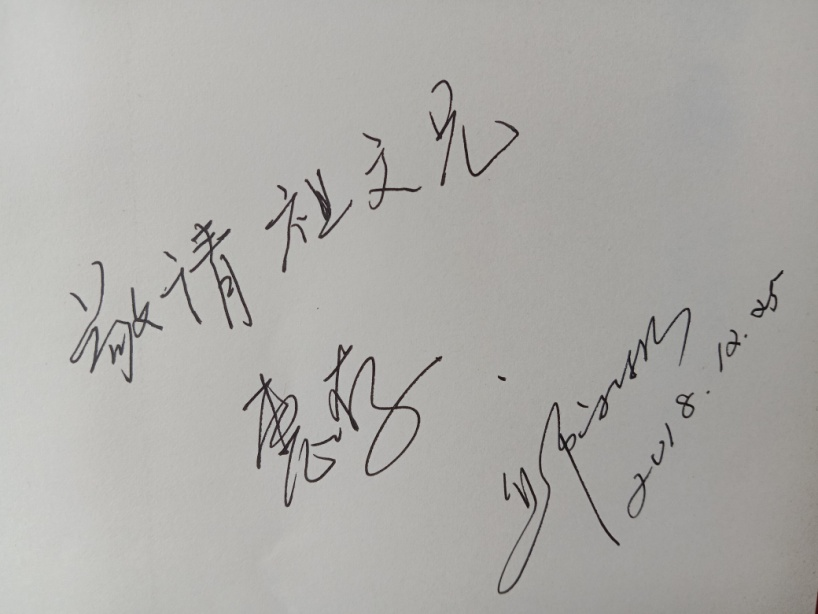 敬请祖文兄
惠存
2018.12.25